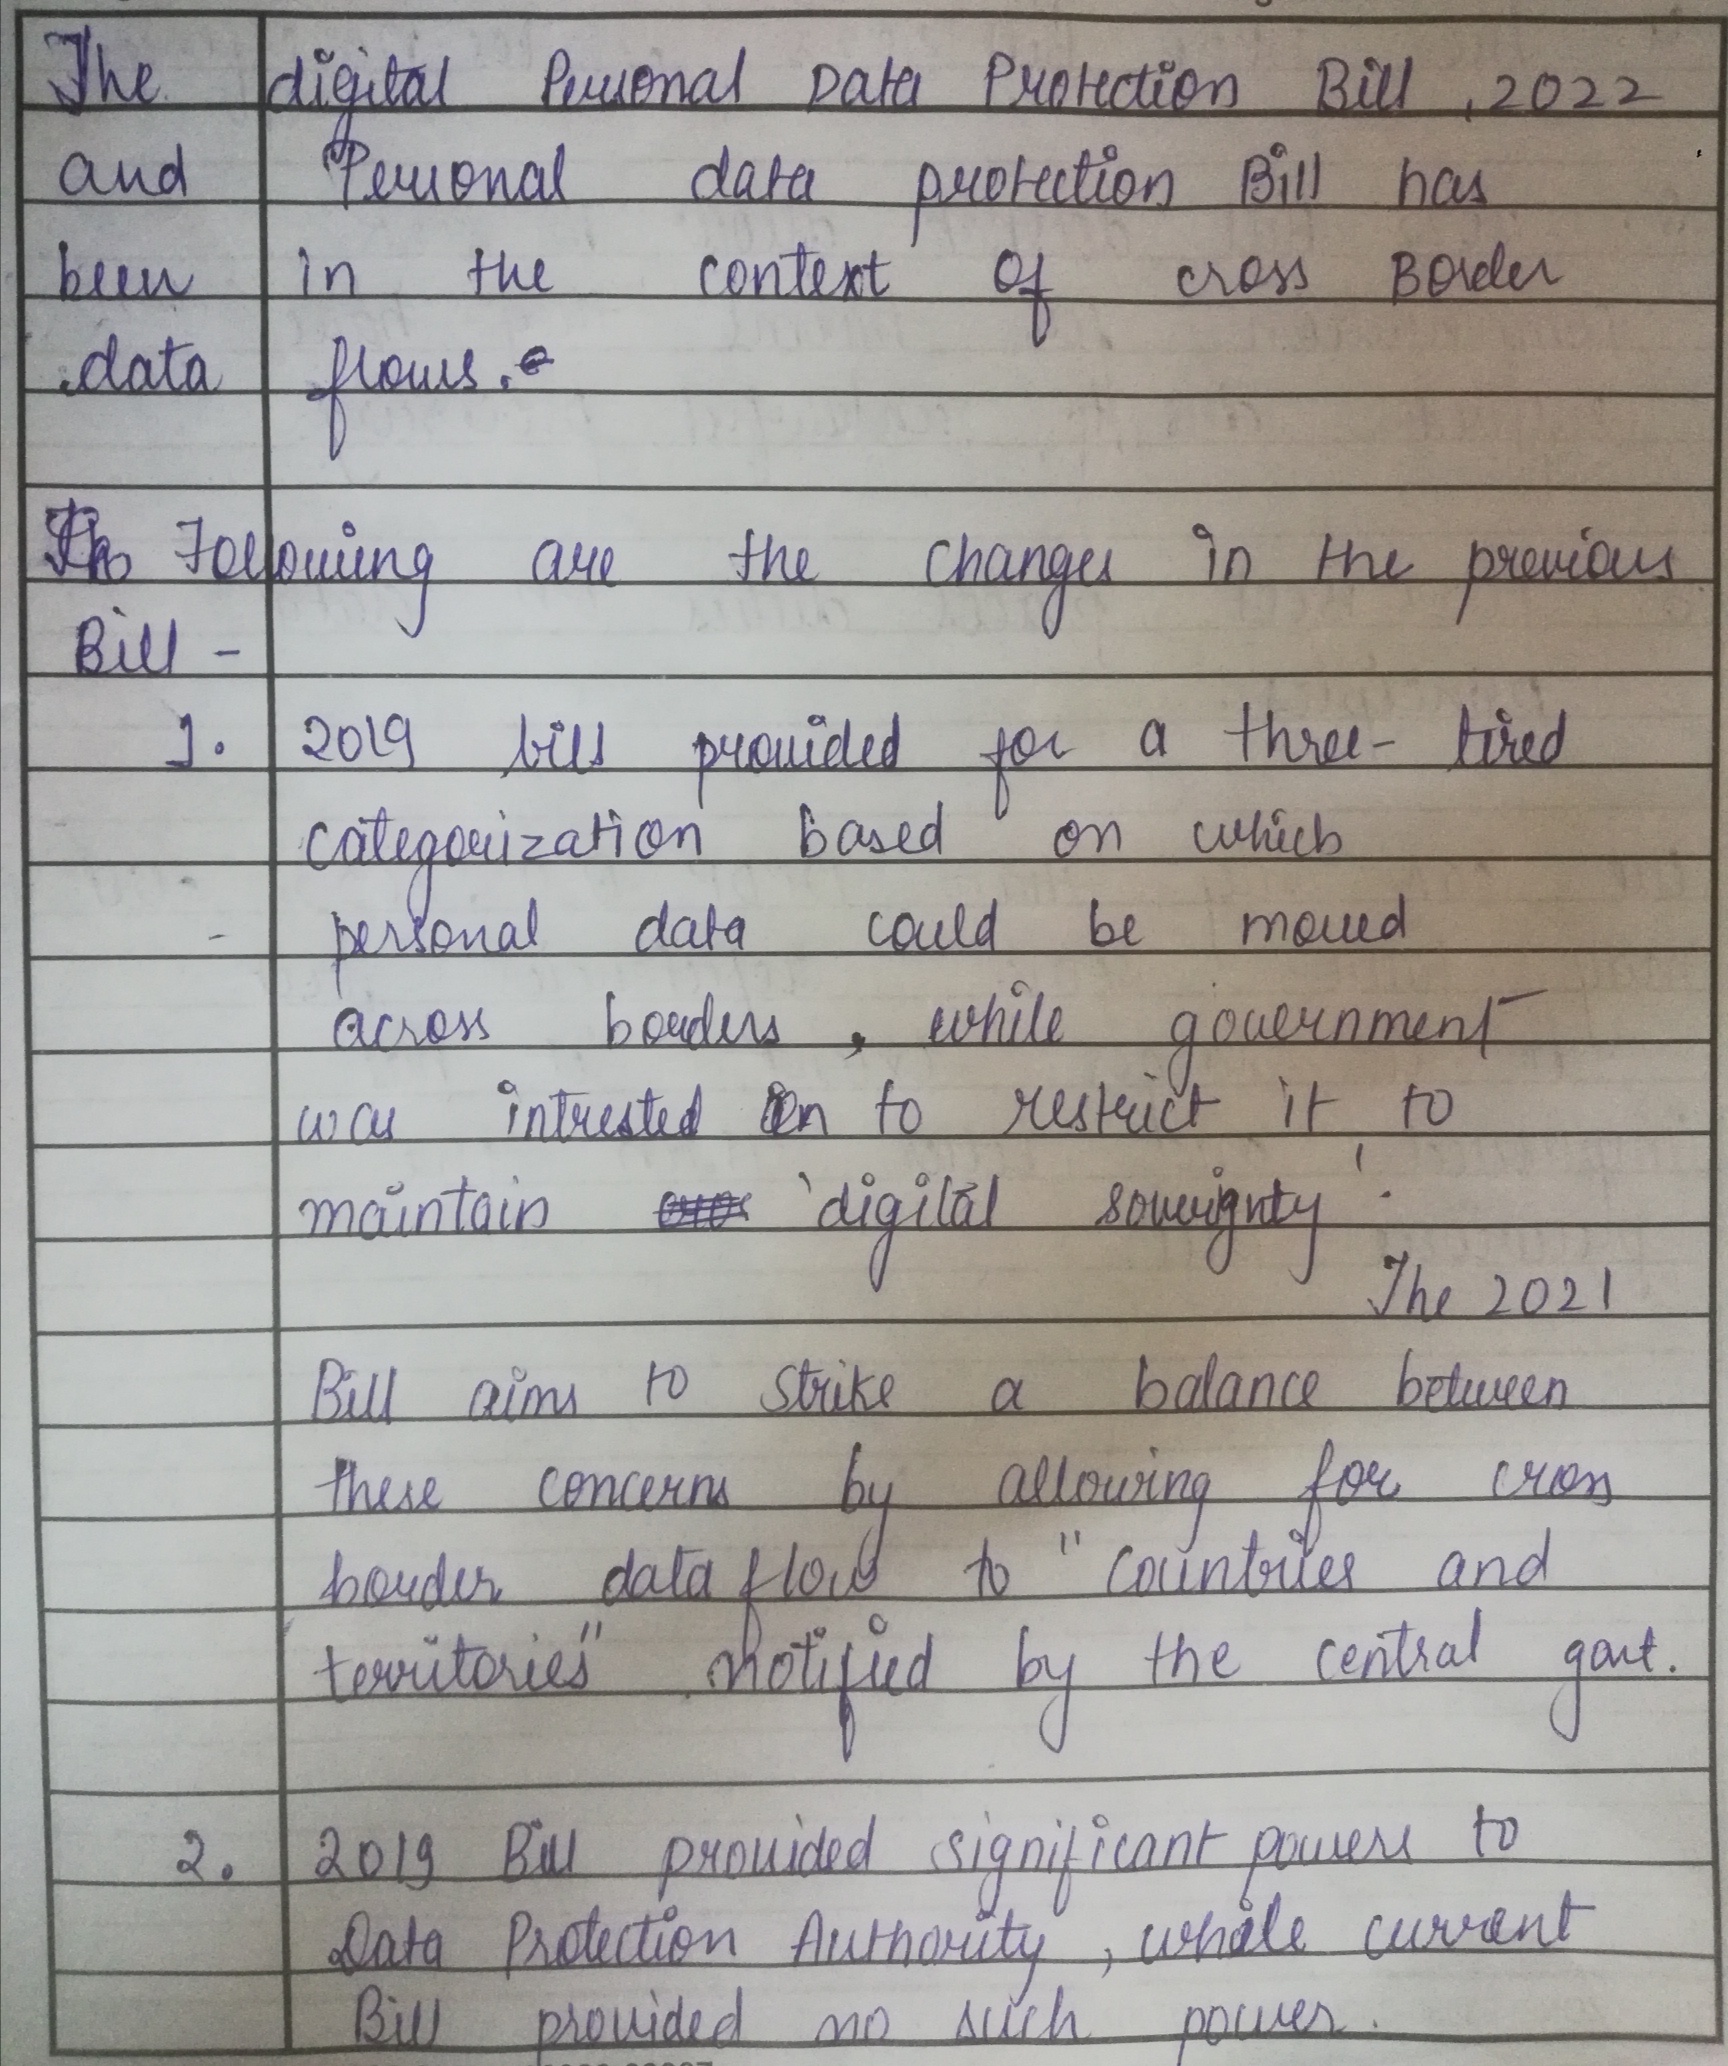 The digital Personal Data Protection Bill, 2022
and Personal data protection Bill has
been in the context of cross Border
data flows.
Following are the changes in the previous
Bill -
1. 2019 bill provided for a three- tired
categorization based on which
personal data could be moved
across borders, while government
was intrested in to restrict it to
maintain 'digital soverignty'.
The 2021
Bill aims to strike a balance between
these concerns by allowing for cross
border data flow to "countries and
territories" notified by the central govt.
2. 2019 Bill provided significant powers to
Data Protection Authority, while current
Bill provided no such power.